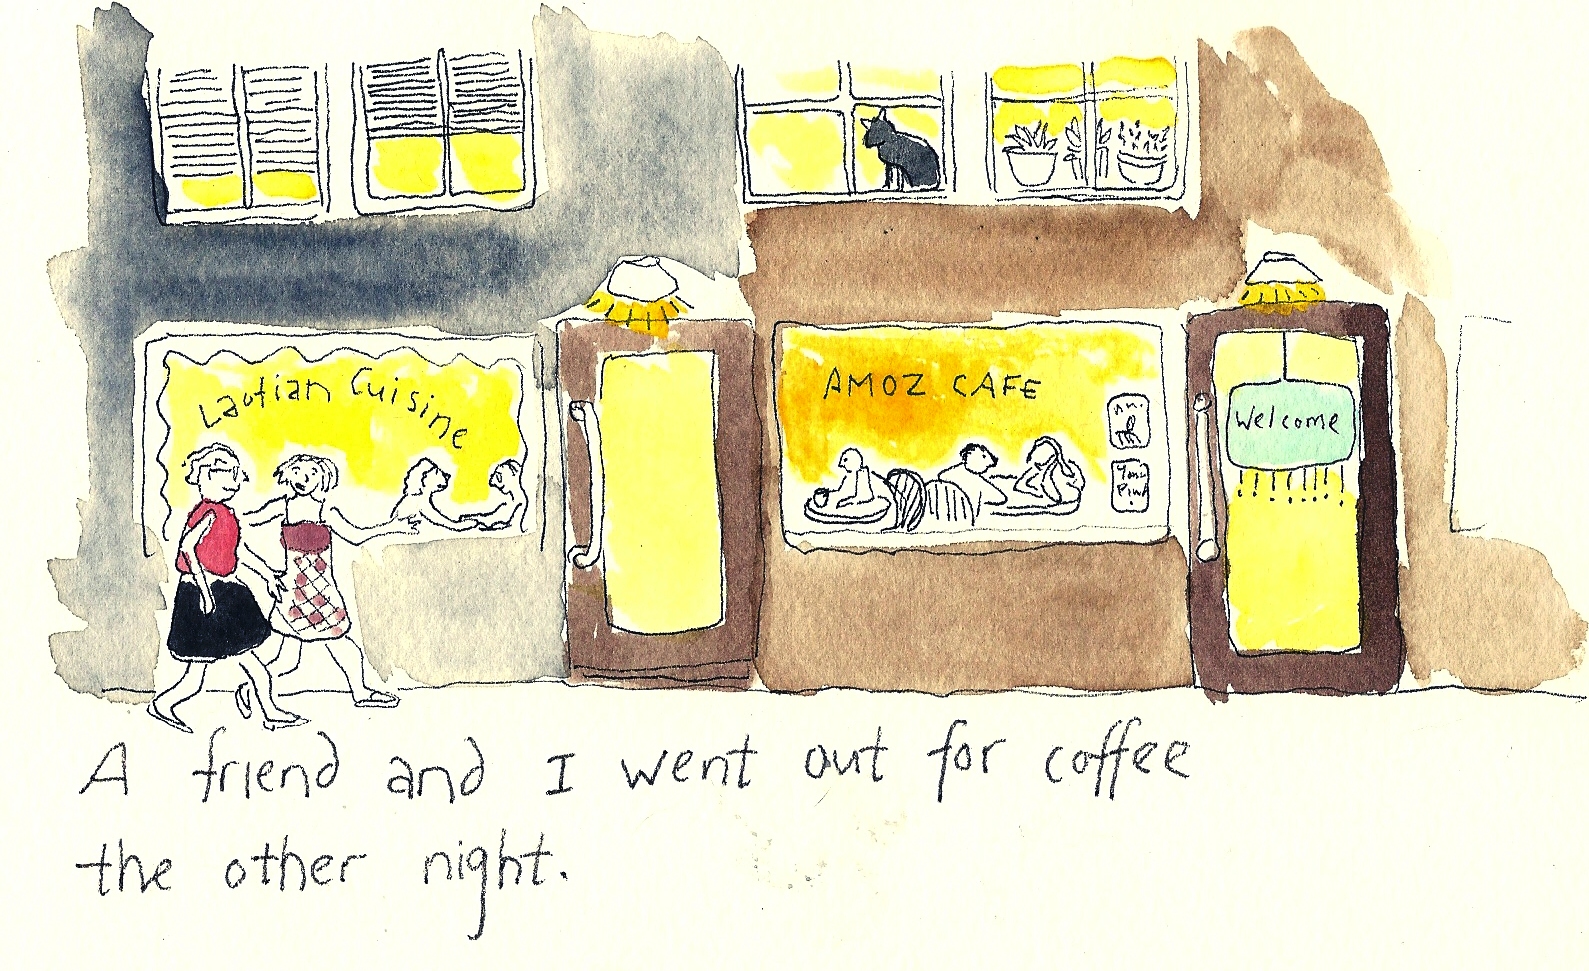 Laotian Cuisine
AMOZ CAFE
Welcome
A friend and I went out for coffee
the other night.